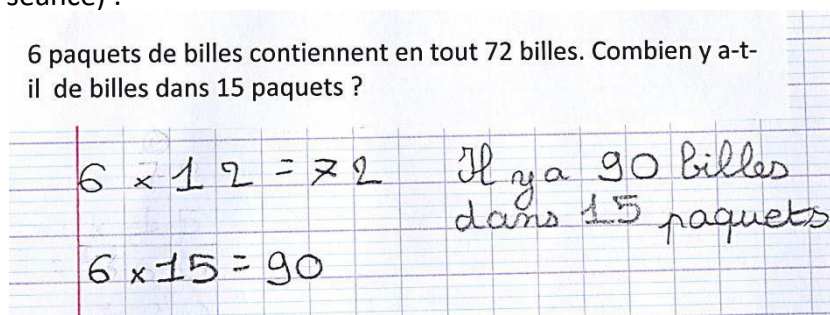 séance) :
6 paquets de billes contiennent en tout 72 billes. Combien y a-t-
il de billes dans 15 paquets ?
6 x 12 = 72
6 x 15 = 90
Il y a 90 billes
dans 15 paquets